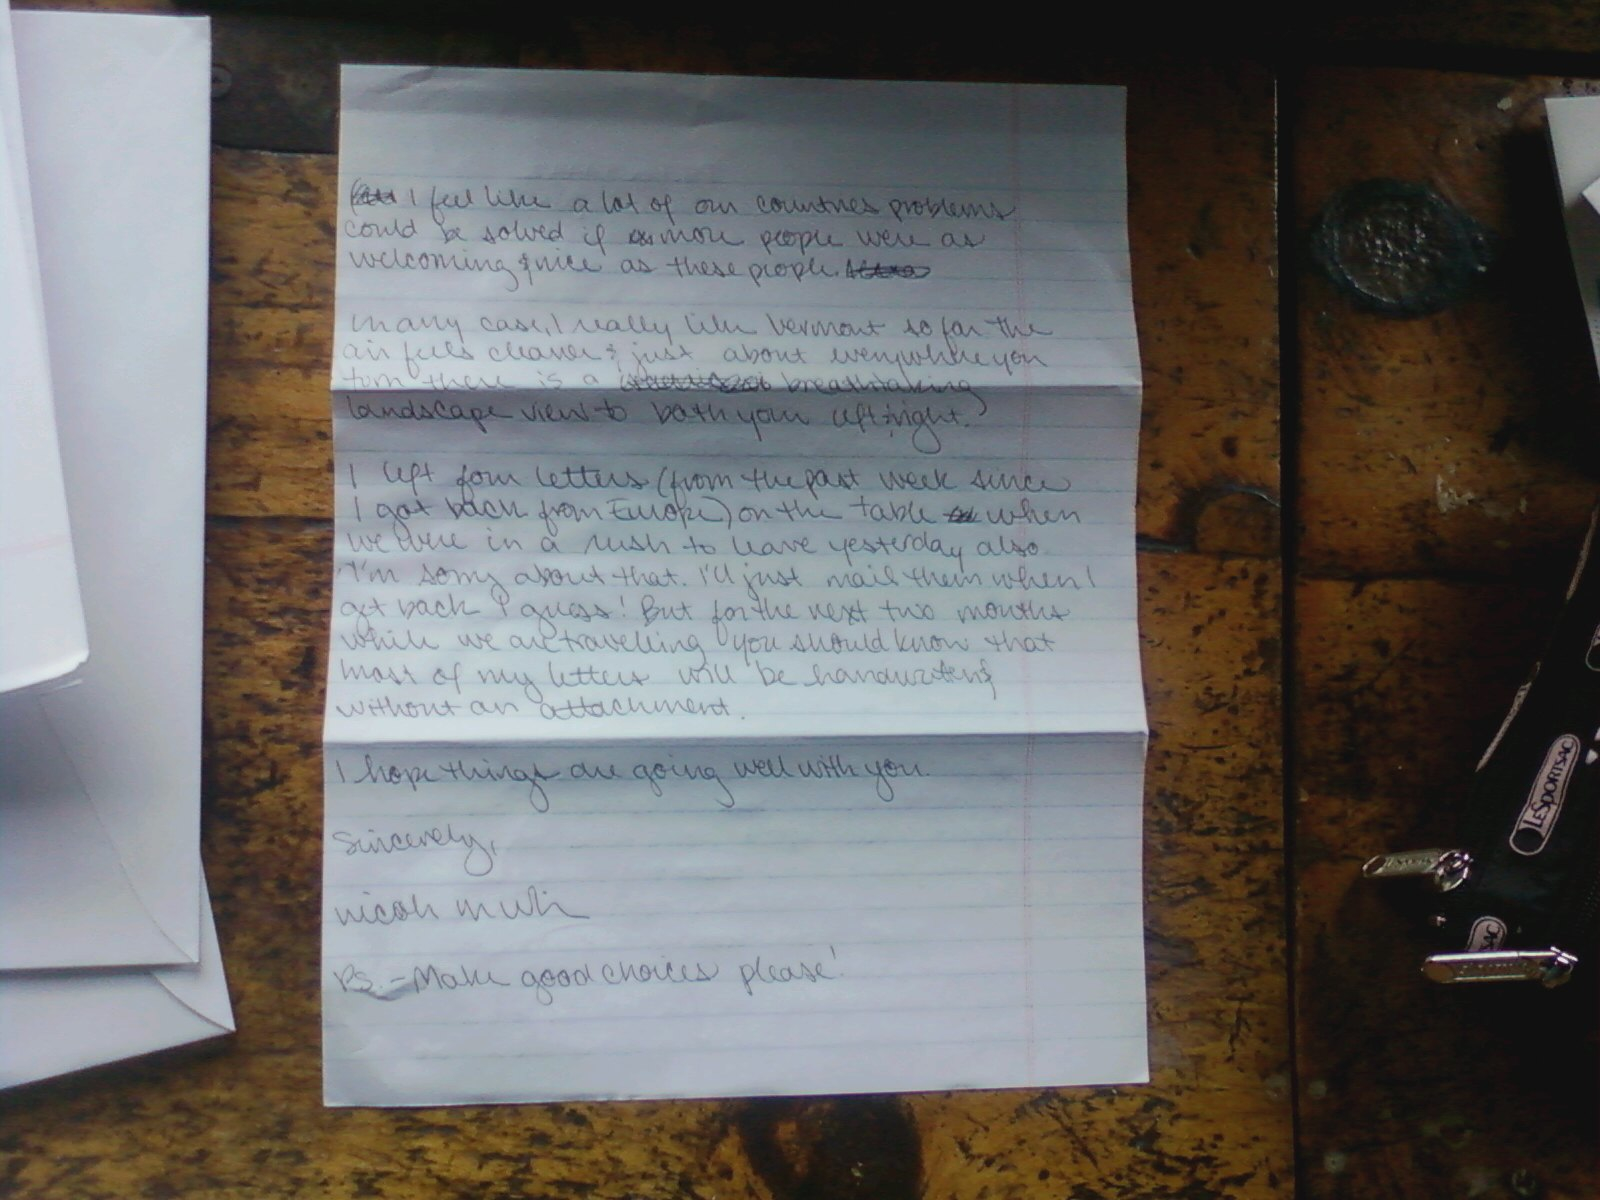 I feel like a lot of our countries problems
could be solved if more people were as
welcoming & nice as these people.
In any case, I really like Vermont so far the
air feels cleaner & just about everywhere you
turn there is a breathtaking
landscape view to both your left & right.
I left four letters (from the past week since
I got back from Europe) on the table when
we were in a rush to leave yesterday also
I'm sorry about that. I'll just mail them when I
get back I guess! But for the next two months
while we are travelling you should know that
most of my letters will be handwritten &
without an attachment.
I hope things are going well with you.
Sincerely,
nicole
P.S. - Make good choices please!
LESPORTSAC
SAC